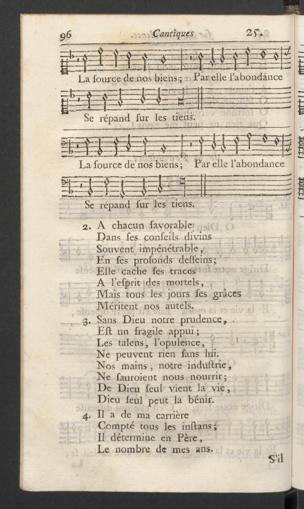 96 Cantiques 25.
La ſource de nos biens; Par elle l'abondance
Se répand ſur les tiens.
La ſource de nos biens; Par elle l'abondance
Se répand ſur les tiens.
2. A chacun favorable
Dans ſes conſeils divins
Souvent impénétrable,
En ſes profonds deſſeins;
Elle cache ſes traces
A l'eſprit des mortels,
Mais tous les jours ſes grâces
Méritent nos autels.
3. Sans Dieu notre prudence,
Eſt un fragile appui;
Les talens, l'opulence,
Ne peuvent rien ſans lui.
Nos mains, notre induſtrie,
Ne ſauroient nous nourrir;
De Dieu ſeul vient la vie,
Dieu ſeul peut la bénir.
4. Il a de ma carrière
Compté tous les inſtans;
Il détermine en Père,
Le nombre de mes ans.
S'il